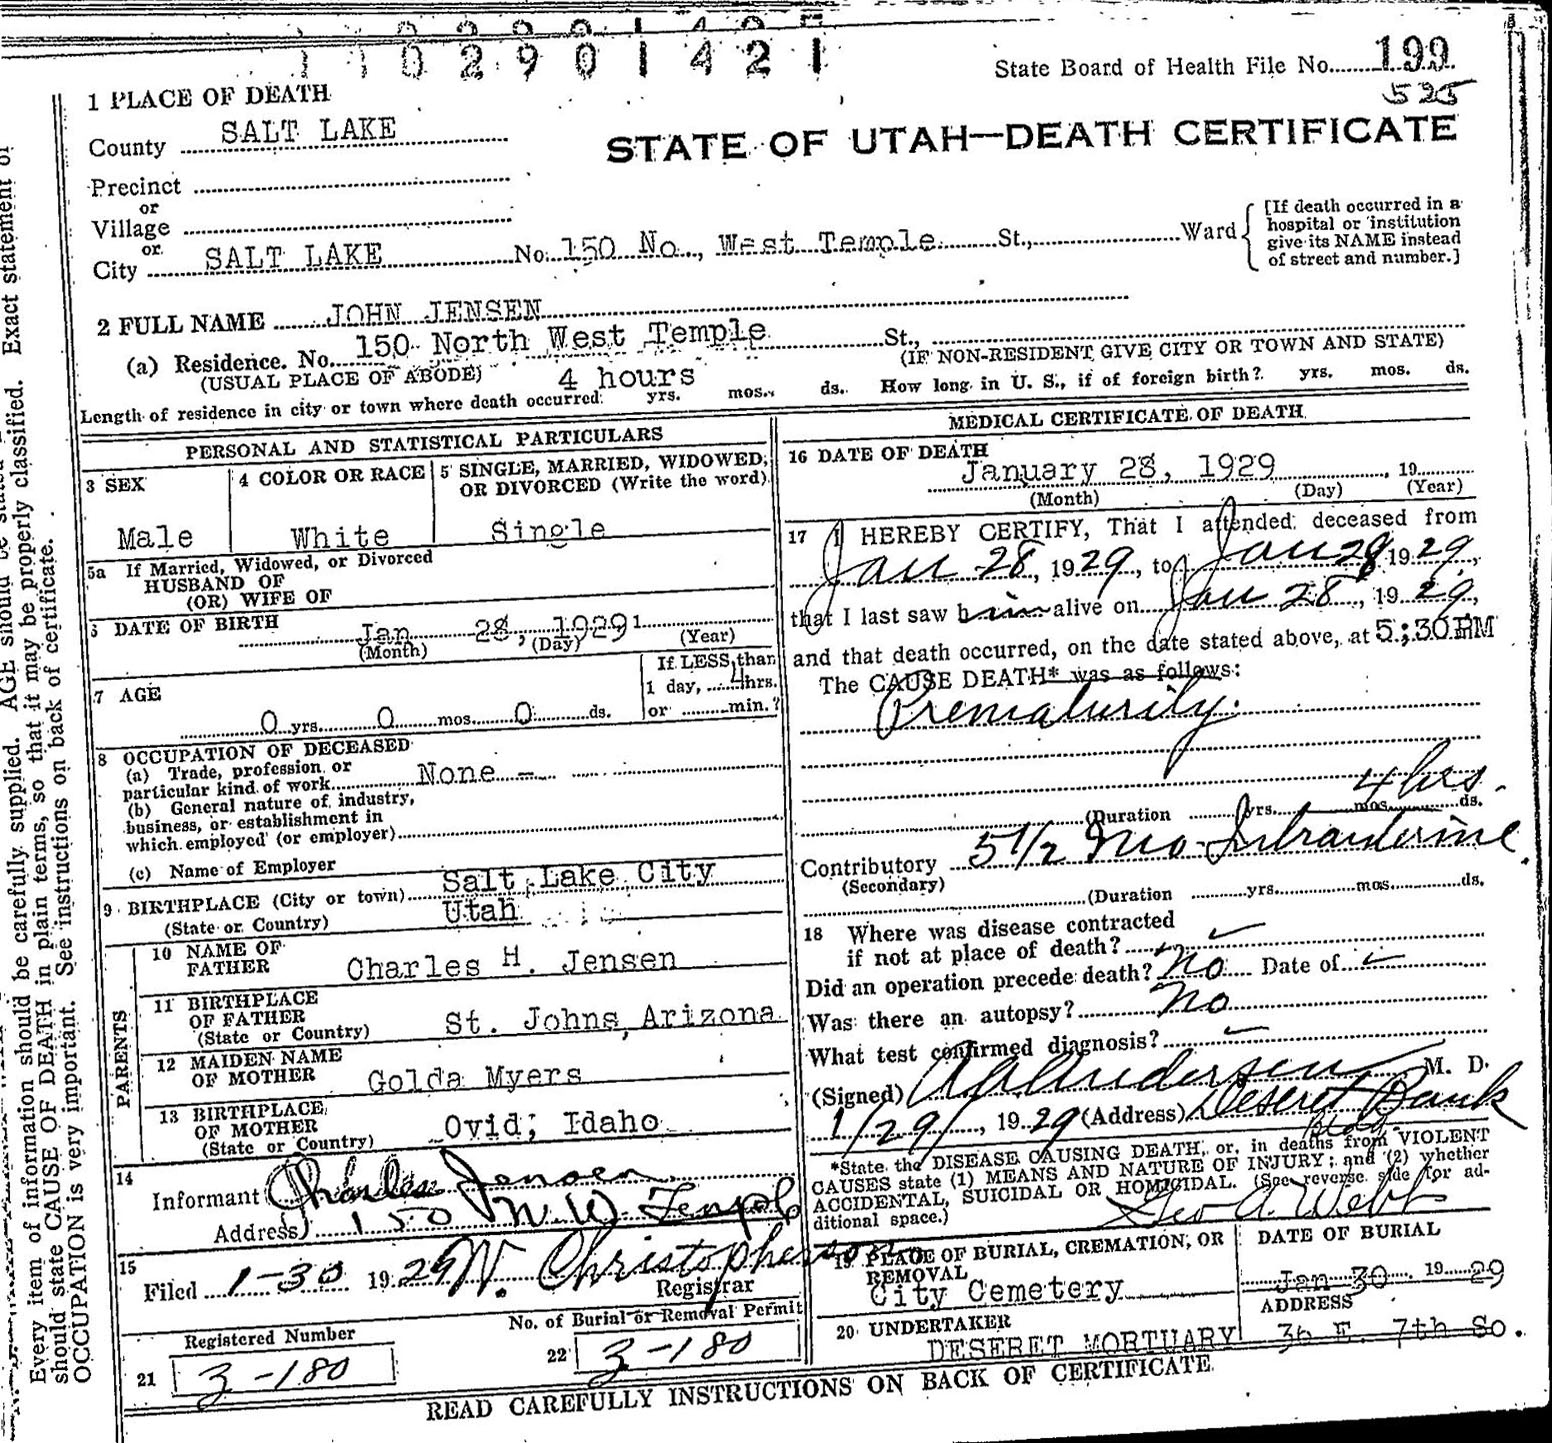 1 1 0 2 9 0 1 4 2 1
State Board of Health File No. 199
525
1 PLACE OF DEATH
STATE OF UTAH—DEATH CERTIFICATE
County SALT LAKE
Precinct
or
Village
or
City SALT LAKE No. 150 No., West Temple St., Ward
[If death occurred in a
hospital or institution
give its NAME instead
of street and number.]
2 FULL NAME JOHN JENSEN
(a) Residence. No. 150 North West Temple St.,
(USUAL PLACE OF ABODE)
(IF NON-RESIDENT GIVE CITY OR TOWN AND STATE)
Length of residence in city or town where death occurred 4 hours yrs. mos. ds. How long in U. S., if of foreign birth? yrs. mos. ds.
PERSONAL AND STATISTICAL PARTICULARS
3 SEX
Male
4 COLOR OR RACE
White
5 SINGLE, MARRIED, WIDOWED,
OR DIVORCED (Write the word)
Single
5a If Married, Widowed, or Divorced
HUSBAND OF
(OR) WIFE OF
6 DATE OF BIRTH Jan 28, 1929
(Month) (Day) (Year)
7 AGE
0 yrs. 0 mos. 0 ds.
If LESS than
1 day, 4 hrs.
or min.?
8 OCCUPATION OF DECEASED
(a) Trade, profession or
particular kind of work None
(b) General nature of industry,
business, or establishment in
which employed (or employer)
(c) Name of Employer
9 BIRTHPLACE (City or town) Salt Lake City
(State or Country) Utah
PARENTS
10 NAME OF
FATHER Charles H. Jensen
11 BIRTHPLACE
OF FATHER
(State or Country) St. Johns, Arizona
12 MAIDEN NAME
OF MOTHER Golda Myers
13 BIRTHPLACE
OF MOTHER
(State or Country) Ovid; Idaho
14
Informant Charles Jensen
Address 150 N. W. Temple
15
Filed 1-30 1929 W. Christopherson
Registrar
Registered Number
21 3-180
No. of Burial or Removal Permit
22 3-180
MEDICAL CERTIFICATE OF DEATH
16 DATE OF DEATH
January 28, 1929, 19
(Month) (Day) (Year)
17 I HEREBY CERTIFY, That I attended deceased from
Jan 28, 1929, to Jan 28 1929,
that I last saw him alive on Jan 28, 1929,
and that death occurred, on the date stated above, at 5:30 PM
The CAUSE DEATH* was as follows:
Prematurity.
4 hrs.
(Duration yrs. mos. ds.
Contributory 5 1/2 mo Intrauterine
(Secondary)
(Duration yrs. mos. ds.
18 Where was disease contracted
if not at place of death?
Did an operation precede death? no Date of
Was there an autopsy? no
What test confirmed diagnosis?
(Signed) Andersen M. D.
1/29/, 1929 (Address) Deseret Bank
bldg
*State the DISEASE CAUSING DEATH, or, in deaths from VIOLENT
CAUSES state (1) MEANS AND NATURE OF INJURY; and (2) whether
ACCIDENTAL, SUICIDAL OR HOMICIDAL. (See reverse side for ad-
ditional space.)
Geo A. Webb
19 PLACE OF BURIAL, CREMATION, OR
REMOVAL
City Cemetery
DATE OF BURIAL
Jan 30 1929
20 UNDERTAKER
DESERET MORTUARY
ADDRESS
36 E. 7th So.
READ CAREFULLY INSTRUCTIONS ON BACK OF CERTIFICATE
Every item of information should be carefully supplied. AGE should be stated
should state CAUSE OF DEATH in plain terms, so that it may be properly classified. Exact statement of
OCCUPATION is very important. See instructions on back of certificate.